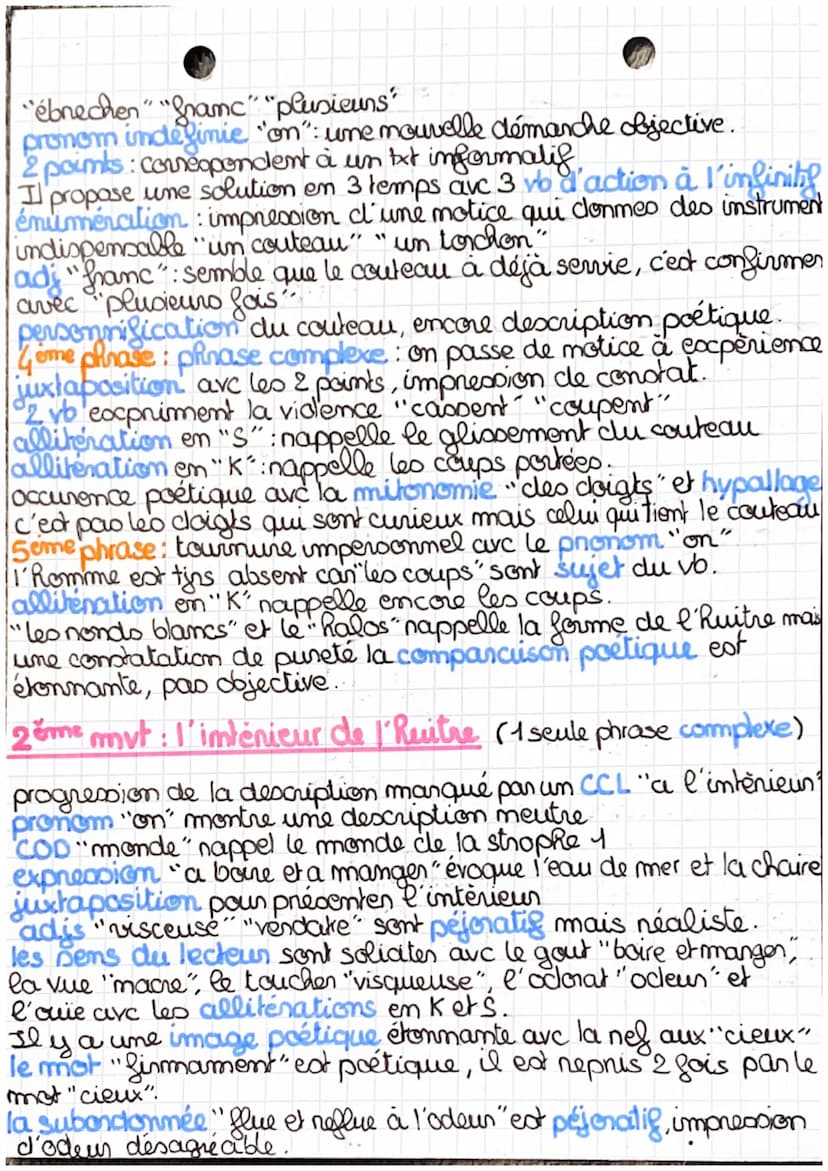 "ébrecher" "franc" "plusieurs"
pronom indéfinie "on": une nouvelle démarche objective.
2 points : correspondent à un txt informatif
Il propose une solution en 3 temps avc 3 vb d'action à l'infinitif
énumération : impression d'une notice qui donnes des instrument
indispensable "un couteau" "un torchon"
adj "franc": semble que le couteau à déjà servie, c'est confirmer
avec "plusieurs fois".
personnification du couteau, encore description poétique.
4ème phrase : phrase complexe : on passe de notice à expérience
juxtaposition avc les 2 points, impression de constat.
2 vb expriment la violence "cassent" "coupent"
allitération en "S": rappelle le glissement du couteau
allitération en "K": rappelle les coups portées.
occurence poétique avc la mitonomie "des doigts" et hypallage
c'est pas les doigts qui sont curieux mais celui qui tient le couteau
5ème phrase : tournure impersonnel avc le pronom "on"
l'Homme est tjrs absent car "les coups" sont sujet du vb.
allitération en "K" rappelle encore les coups.
"les ronds blancs" et le "halos" rappelle la forme de l'huitre mais
une constatation de pureté la comparaison poétique est
étonnante, pas objective.
2ème mvt : l'intérieur de l'huitre (1 seule phrase complexe)
progression de la description marqué par un CCL "a l'intérieur"
pronom "on" montre une description neutre
COD "monde" rappel le monde de la strophe 1
expression "a boire et a manger" évoque l'eau de mer et la chaire
juxtaposition pour présenter l'intérieur
adjs "visceuse" "verdatre" sont péjoratif mais réaliste.
les sens du lecteur sont soliciter avc le gout "boire et manger",
la vue "nacre", le toucher "visqueuse", l'odorat "odeur" et
l'ouïe avc les allitérations en K et S.
Il y a une image poétique étonnante avc la ref aux "cieux"
le mot "firmament" est poétique, il est repris 2 fois par le
mot "cieux".
la subordonnée "flue et reflue à l'odeur" est péjoratif, impression
d'odeur désagréable.